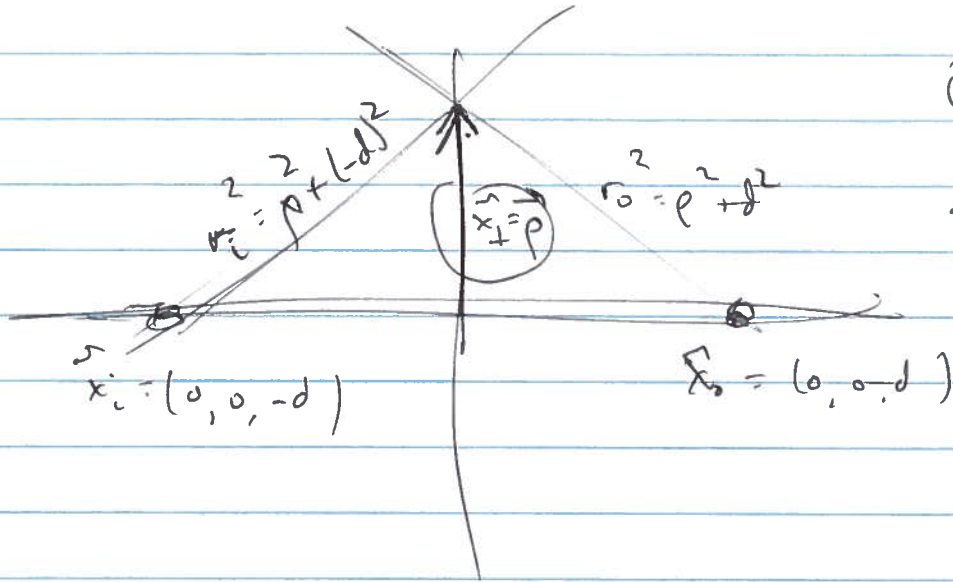 r_i^2 = ρ^2 + (-d)^2
r_0^2 = ρ^2 + d^2
x_⊥ = ρ
x_i = (0, 0, -d)
x_0 = (0, 0, d)